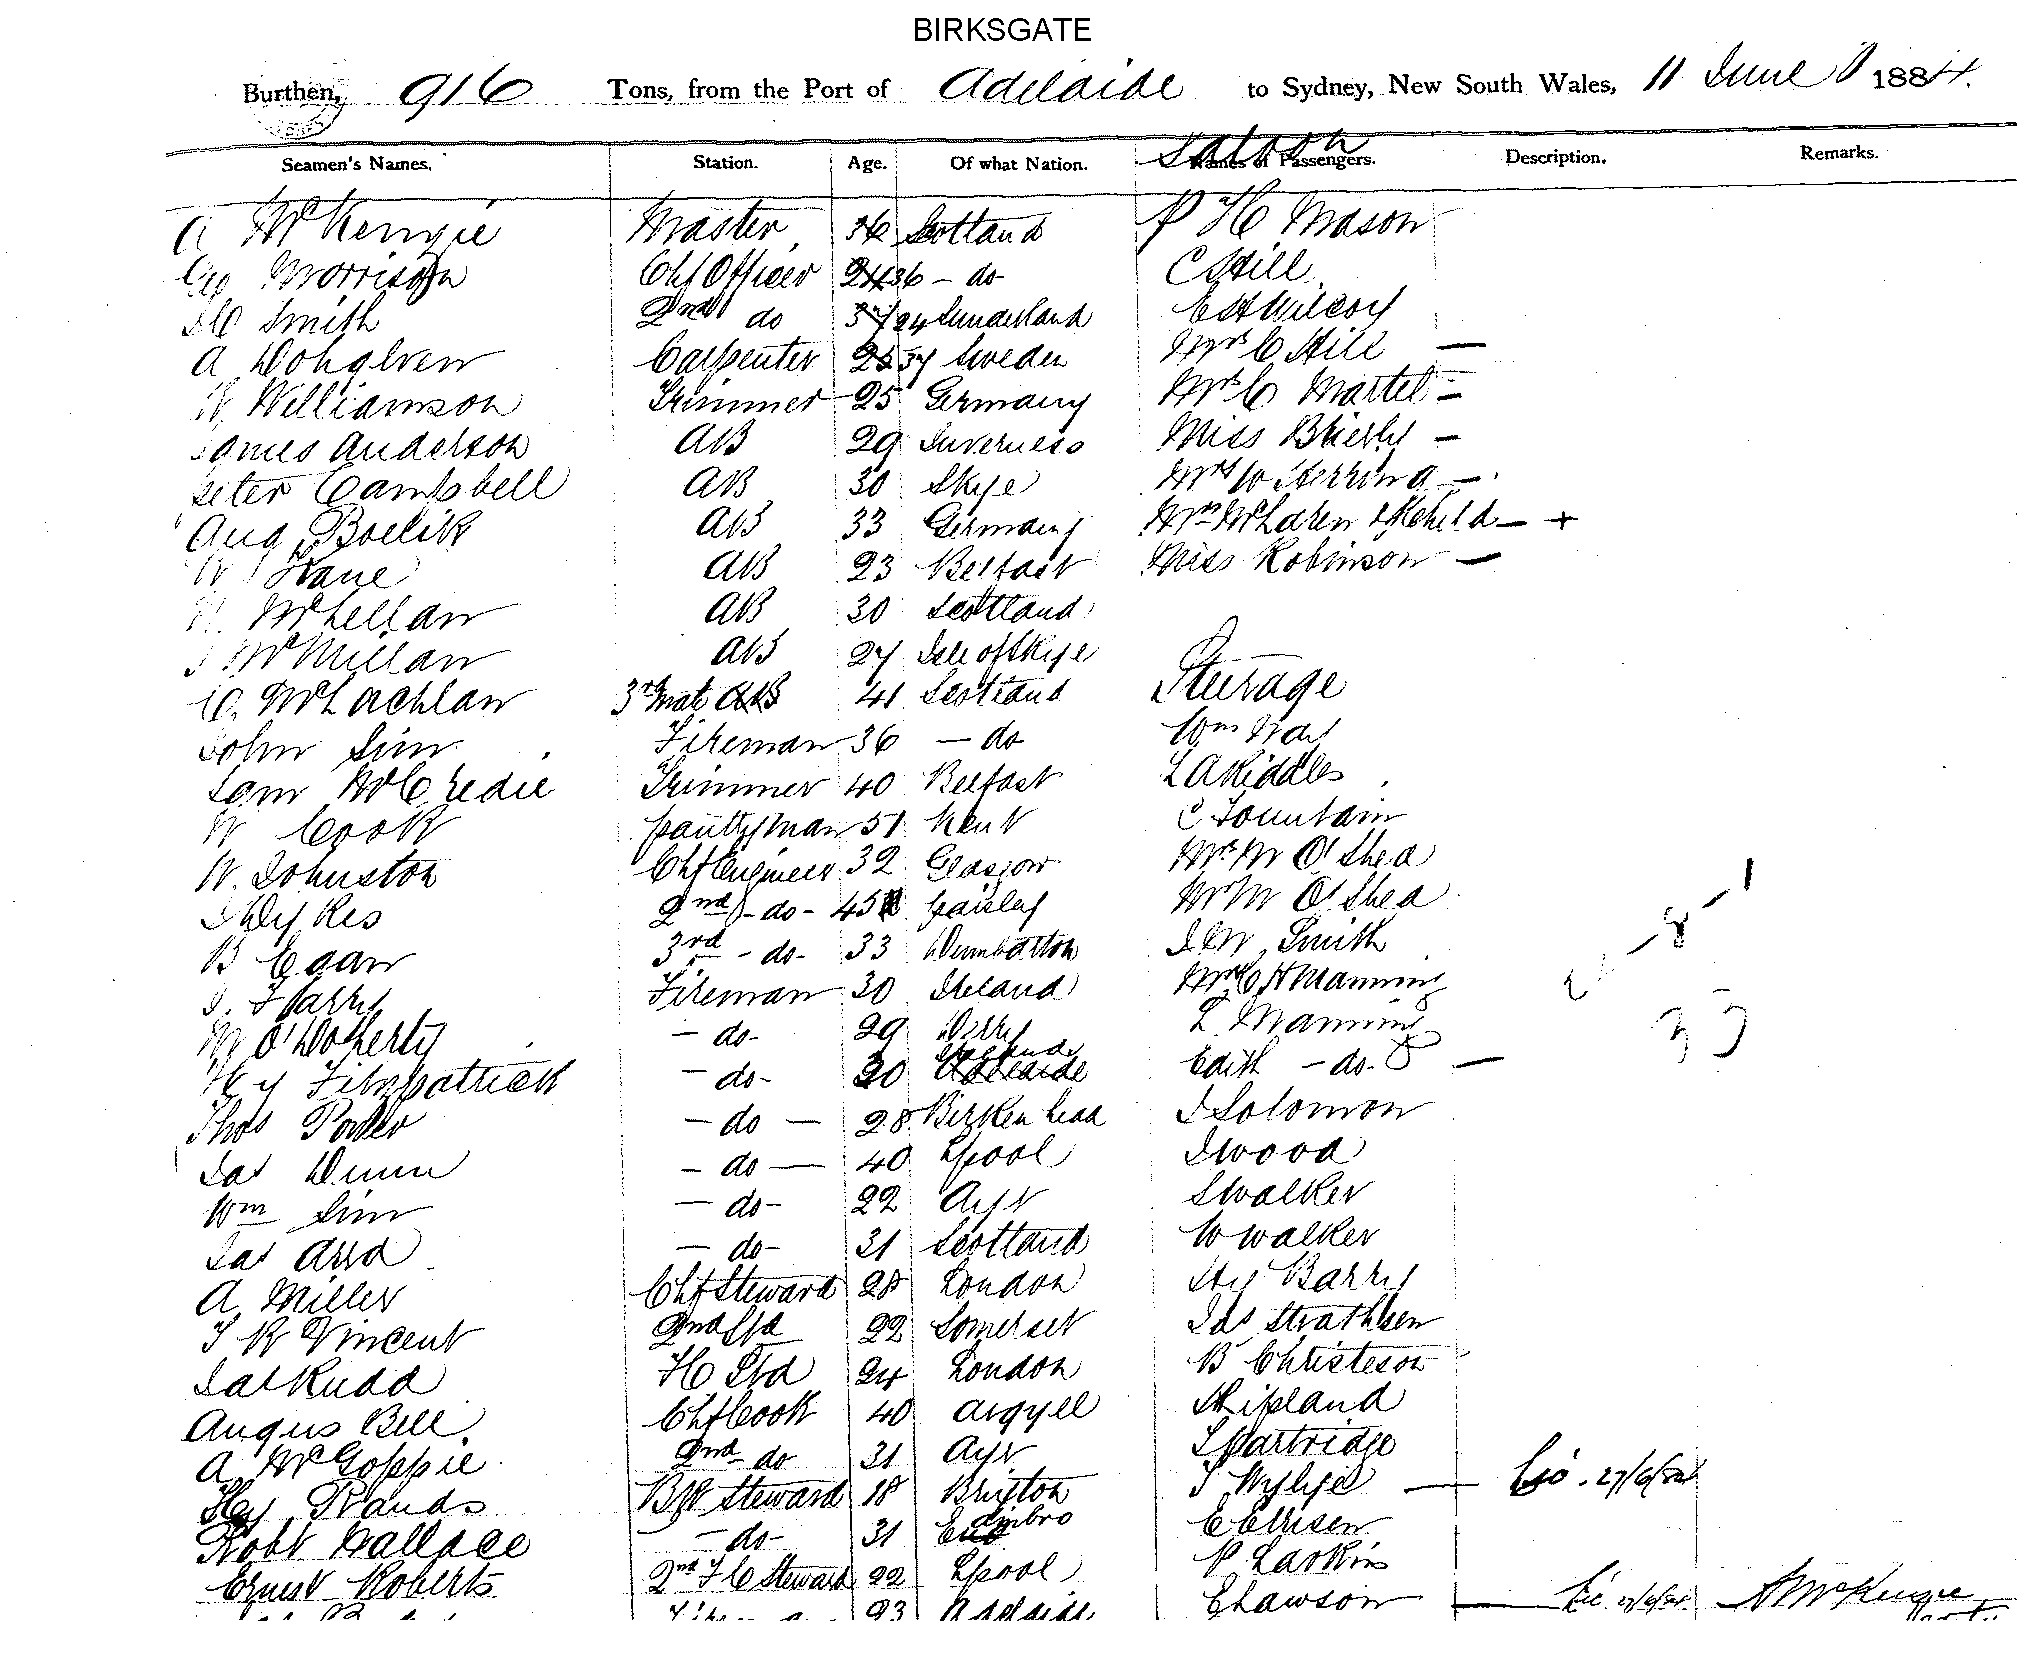 BIRKSGATE
Burthen, 916 Tons, from the Port of Adelaide to Sydney, New South Wales, 11 June 1884.
Saloon
Seamen's Names. Station. Age. Of what Nation. Names of Passengers. Description. Remarks.
A McKenzie Master 36 Scotland P H Mason
Geo Morrison Chf Officer 36 - do C Hill
Smith 2nd do 24 Sunderland E H Wilcox
A Carpenter 37 Sweden Mrs C Hill —
W Williamson Trimmer 25 Germany Mrs C Martel -
James Anderson AB 29 Inverness Miss Brierly -
Peter Campbell AB 30 Skye Mrs W Herring -
Aug Boelik AB 33 Germany Mrs McLaren & child - +
W Kane AB 23 Belfast Miss Robinson -
McLellan AB 30 Scotland
McMillan AB 27 Isle of Skye
McLachlan 3rd Mate AB 41 Scotland Steerage
John Sim Fireman 36 - do Wm Way
Sam McCredie Trimmer 40 Belfast L A Riddles
W Cook Pantryman 51 Kent C Fountain
W. Johnston Chf Engineer 32 Glasgow Mrs M O'Shea
J Dykes 2nd - do - 45 Paisley Mr M O'Shea
B Egan 3rd - do - 33 Dumbarton J W Smith
J. Harry Fireman 30 Ireland Mrs C H Manning
M O'Doherty - do - 29 Derry L Manning
Hy Fitzpatrick - do - 30 Edith - do. —
Thos Power - do - 28 Birkenhead J Solomon
Jas Dunn - do - 40 Lpool J Wood
Wm Sim - do - 22 Ayr S Walker
Jas - do - 31 Scotland W Walker
A Miller Chf Steward 28 London Hy Barry
T R Vincent 2nd Std 22 Somerset Jas Strathben
Jas Rudd F C Std 24 London B Christeson
Angus Bell Chf Cook 40 Argyell Shipland
A McGoppie 2nd do 31 Ayr S Partridge
Hy Rands B Steward 18 Brixton T Wylye — 27/6/84
Robt Wallace - do - 31 Edinbro E Ellisen
Ernest Roberts 2nd F C Steward 22 Lpool P Larkin
23 Adelaide E Lawson — A McKenzie